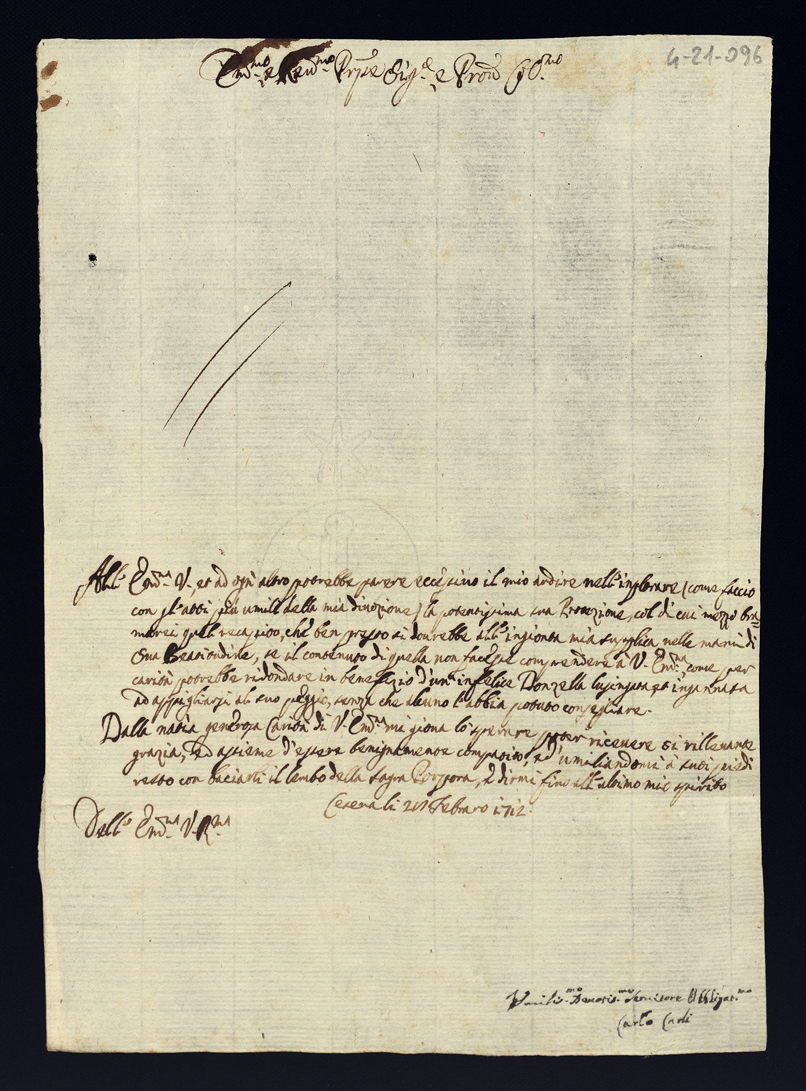 4-21-096
Em̃.mo e Reu.mo Prñpe Sig.re e Prõn Col.mo
All' Em̃.za V., et ad ogn' altro potrebbe parere eccessiuo il mio ardire nell' implorare (come faccio
con gl' atti più umili della mia diuozione) la potentissima sua Protezione, col di cui mezzo bra-
merei quel recapito, che ben presto si dourebbe all' ingionta mia supplica nelle mani di
Sua Beatitudine, se il contenuto di quella non facesse comprendere à V. Em̃.za come per
carità potrebbe ridondare in benefizio d'un' infelice Donzella lusingata et ingannata
ad appigliarsi al suo peggio, senza che alcuno l'abbia potuto consigliare.
Dalla natia generosa Carità di V. Em̃.za mi gioua lo sperare poter riceuere si rilleuante
grazia, ed assieme d'essere benignamente compatito, ed umiliandomi à suoi piedi
resto con baciarli il lembo della sagra Porpora, e dirmi fino all' ultimo mio spirito
Cesena li 21 Febraro 1712
Dell' Em̃.za V. R.ma
Vmilis.mo Deuotis.mo Seruitore Obbligat.mo
Carlo Carli